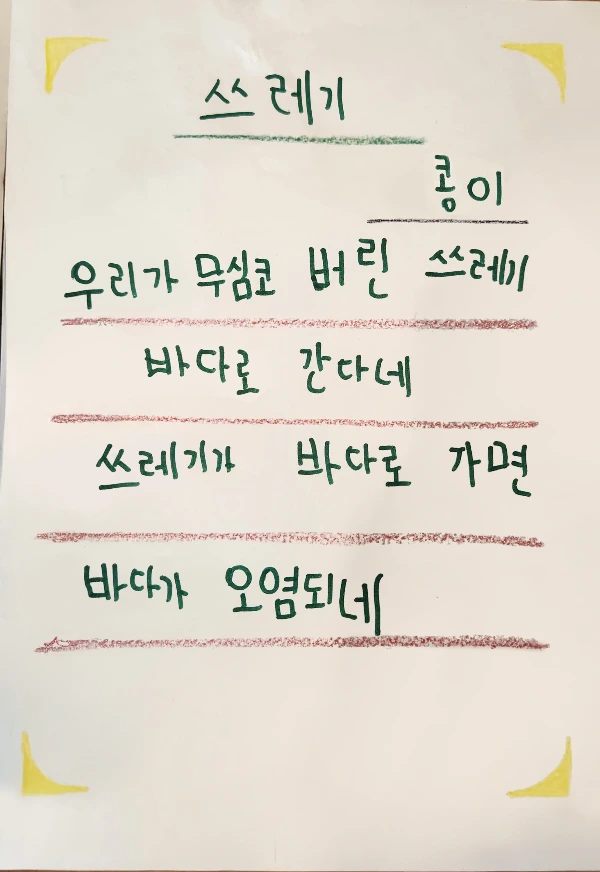 쓰레기
콩이
우리가 무심코 버린 쓰레기
바다로 간다네
쓰레기가 바다로 가면
바다가 오염되네